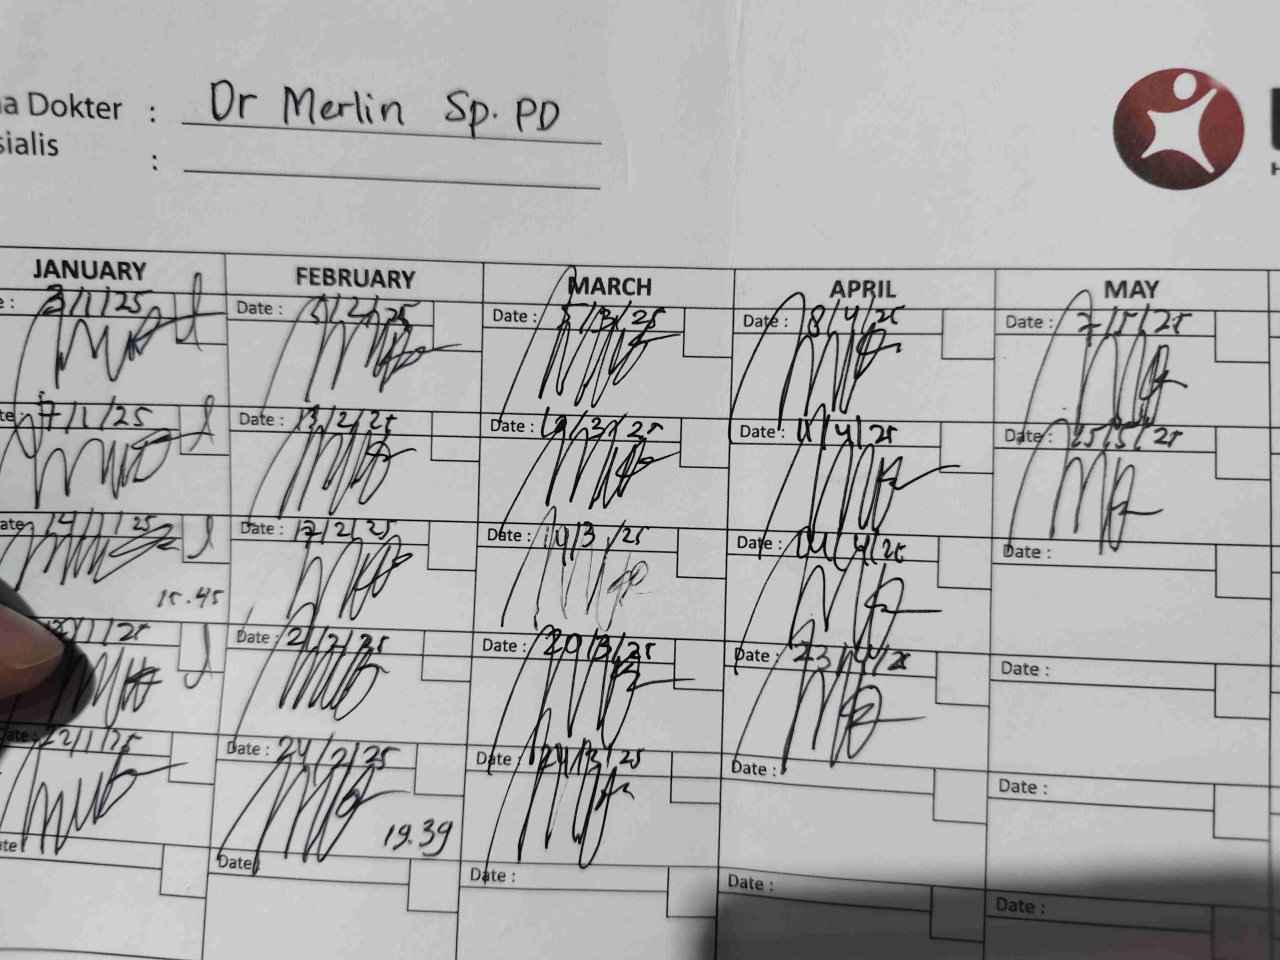 a Dokter : Dr Merlin Sp. PD
sialis :
JANUARY FEBRUARY MARCH APRIL MAY
3/1/25 Date : 3/2/25 Date : 5/3/25 Date : 8/4/25 Date : 7/5/25
7/1/25 Date : 13/2/25 Date : 12/3/25 Date : 11/4/25 Date : 15/5/25
14/1/25 Date : 17/2/25 Date : 14/3/25 Date : 14/4/25 Date :
15.45
20/1/25 Date : 21/2/25 Date : 20/3/25 Date : 23/4/25 Date :
22/1/25 Date : 24/2/25 Date : 24/3/25 Date : Date :
19.39
Date Date : Date : Date :